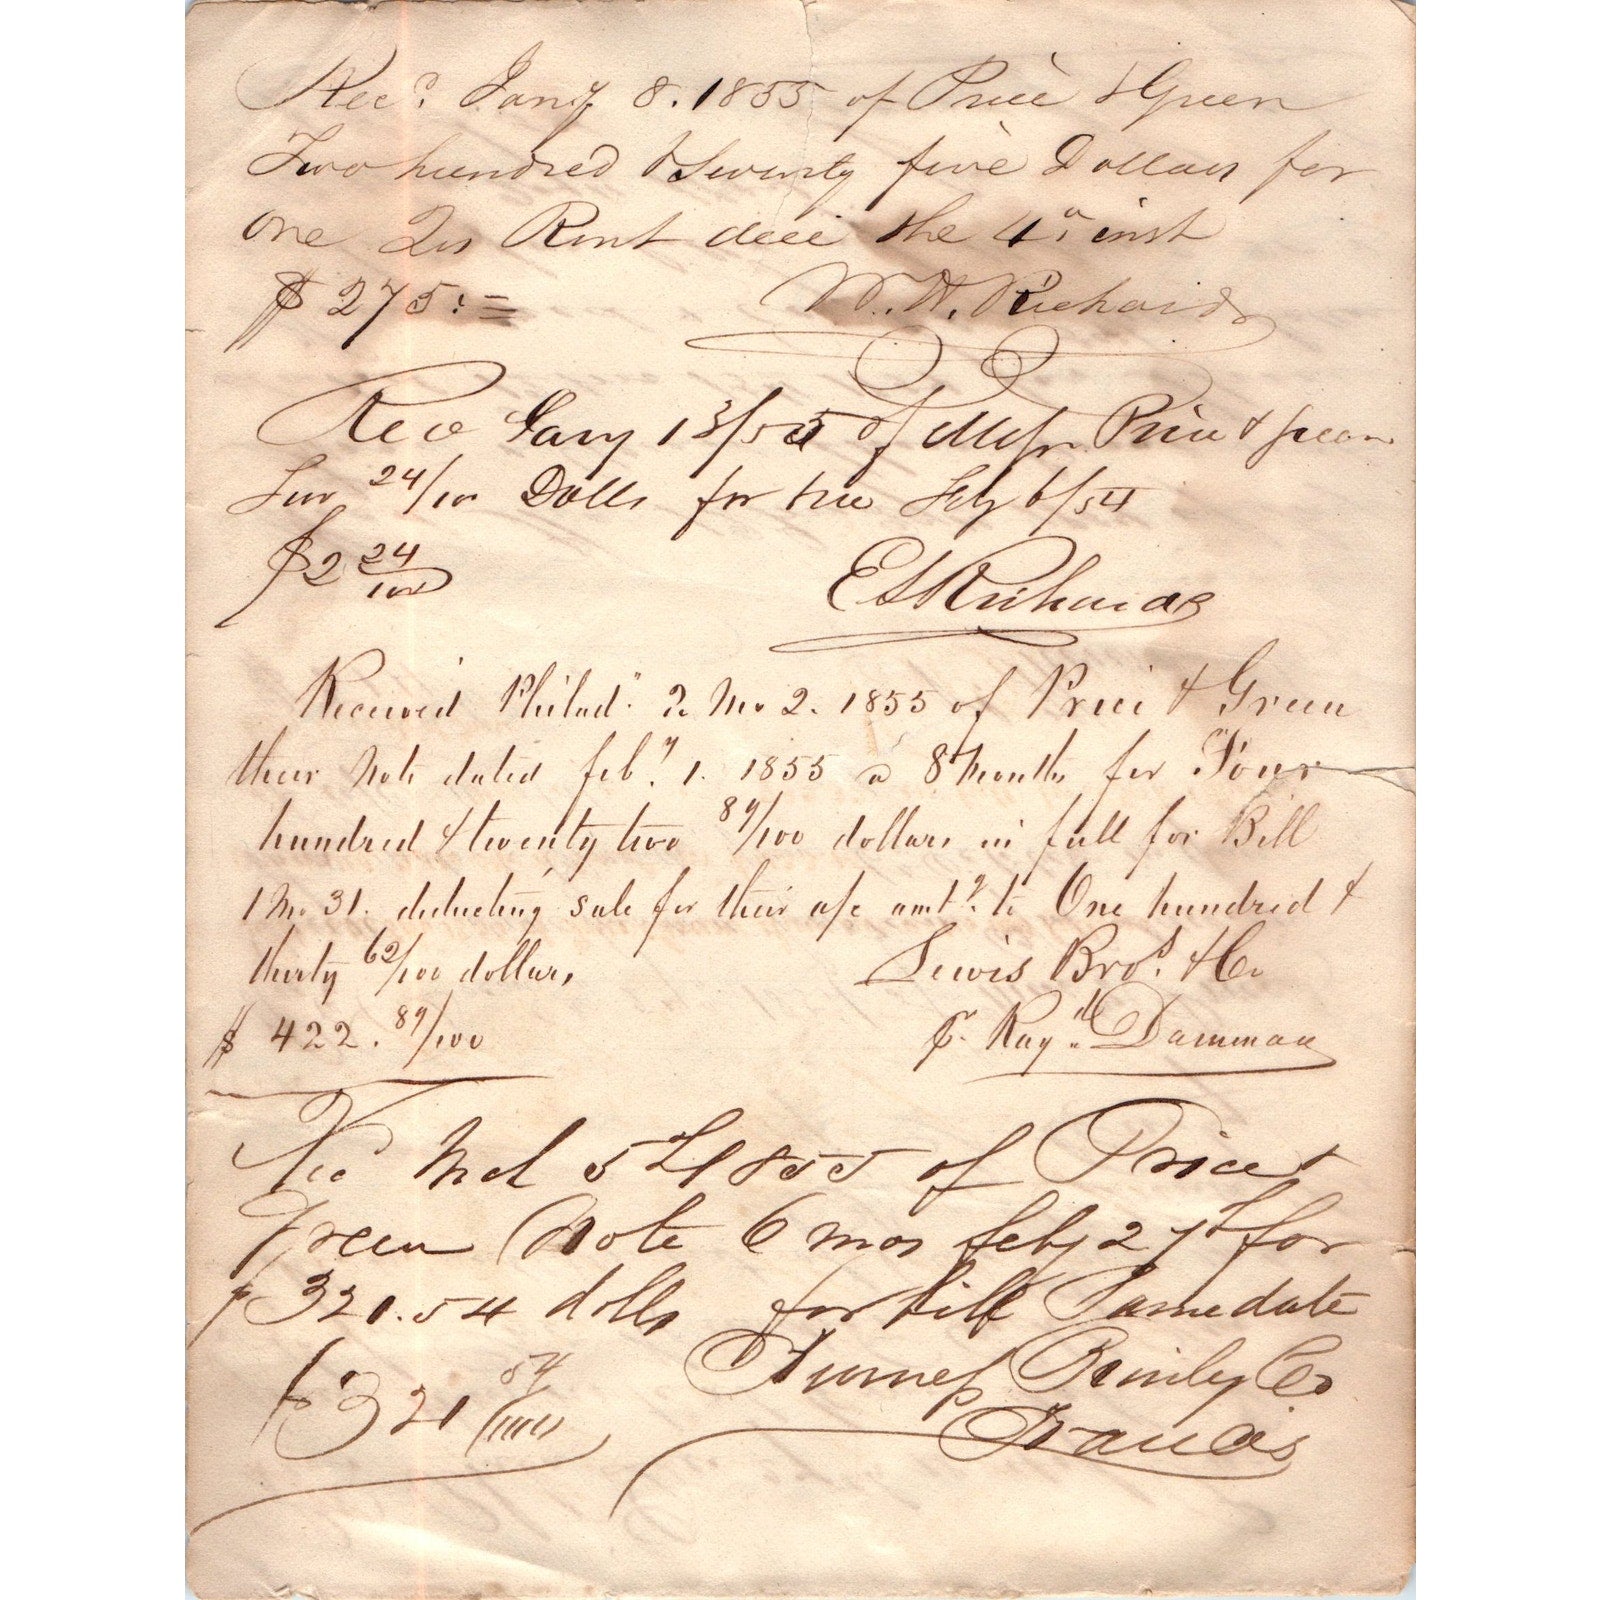 Recd Jany 8. 1855 of Price & Green
Two hundred & Seventy five Dollars for
one Qrs Rent due the 4th inst
$275.=
W. H. Richards
Recd Jany 13/55 of Messrs Price & Green
Two 24/100 Dolls for Feby 6/54
$2 24/100
E S Richards
Received Philada 2 Mo 2. 1855 of Price & Green
their Note dated feby 1. 1855 a 8 Months for Four
hundred & twenty two 89/100 dollars in full for Bill
1 Mo 31. deducting sale for their a/c amtg to One hundred &
thirty 62/100 dollars,
Lewis Bros. & Co
$422. 89/100
pr. Rayd Damman
Rec Mch 5th 1855 of Price &
Green Note 6 mos feby 27th for
$321.54 dolls for bill Same date
$321 54/100
Co
Francis